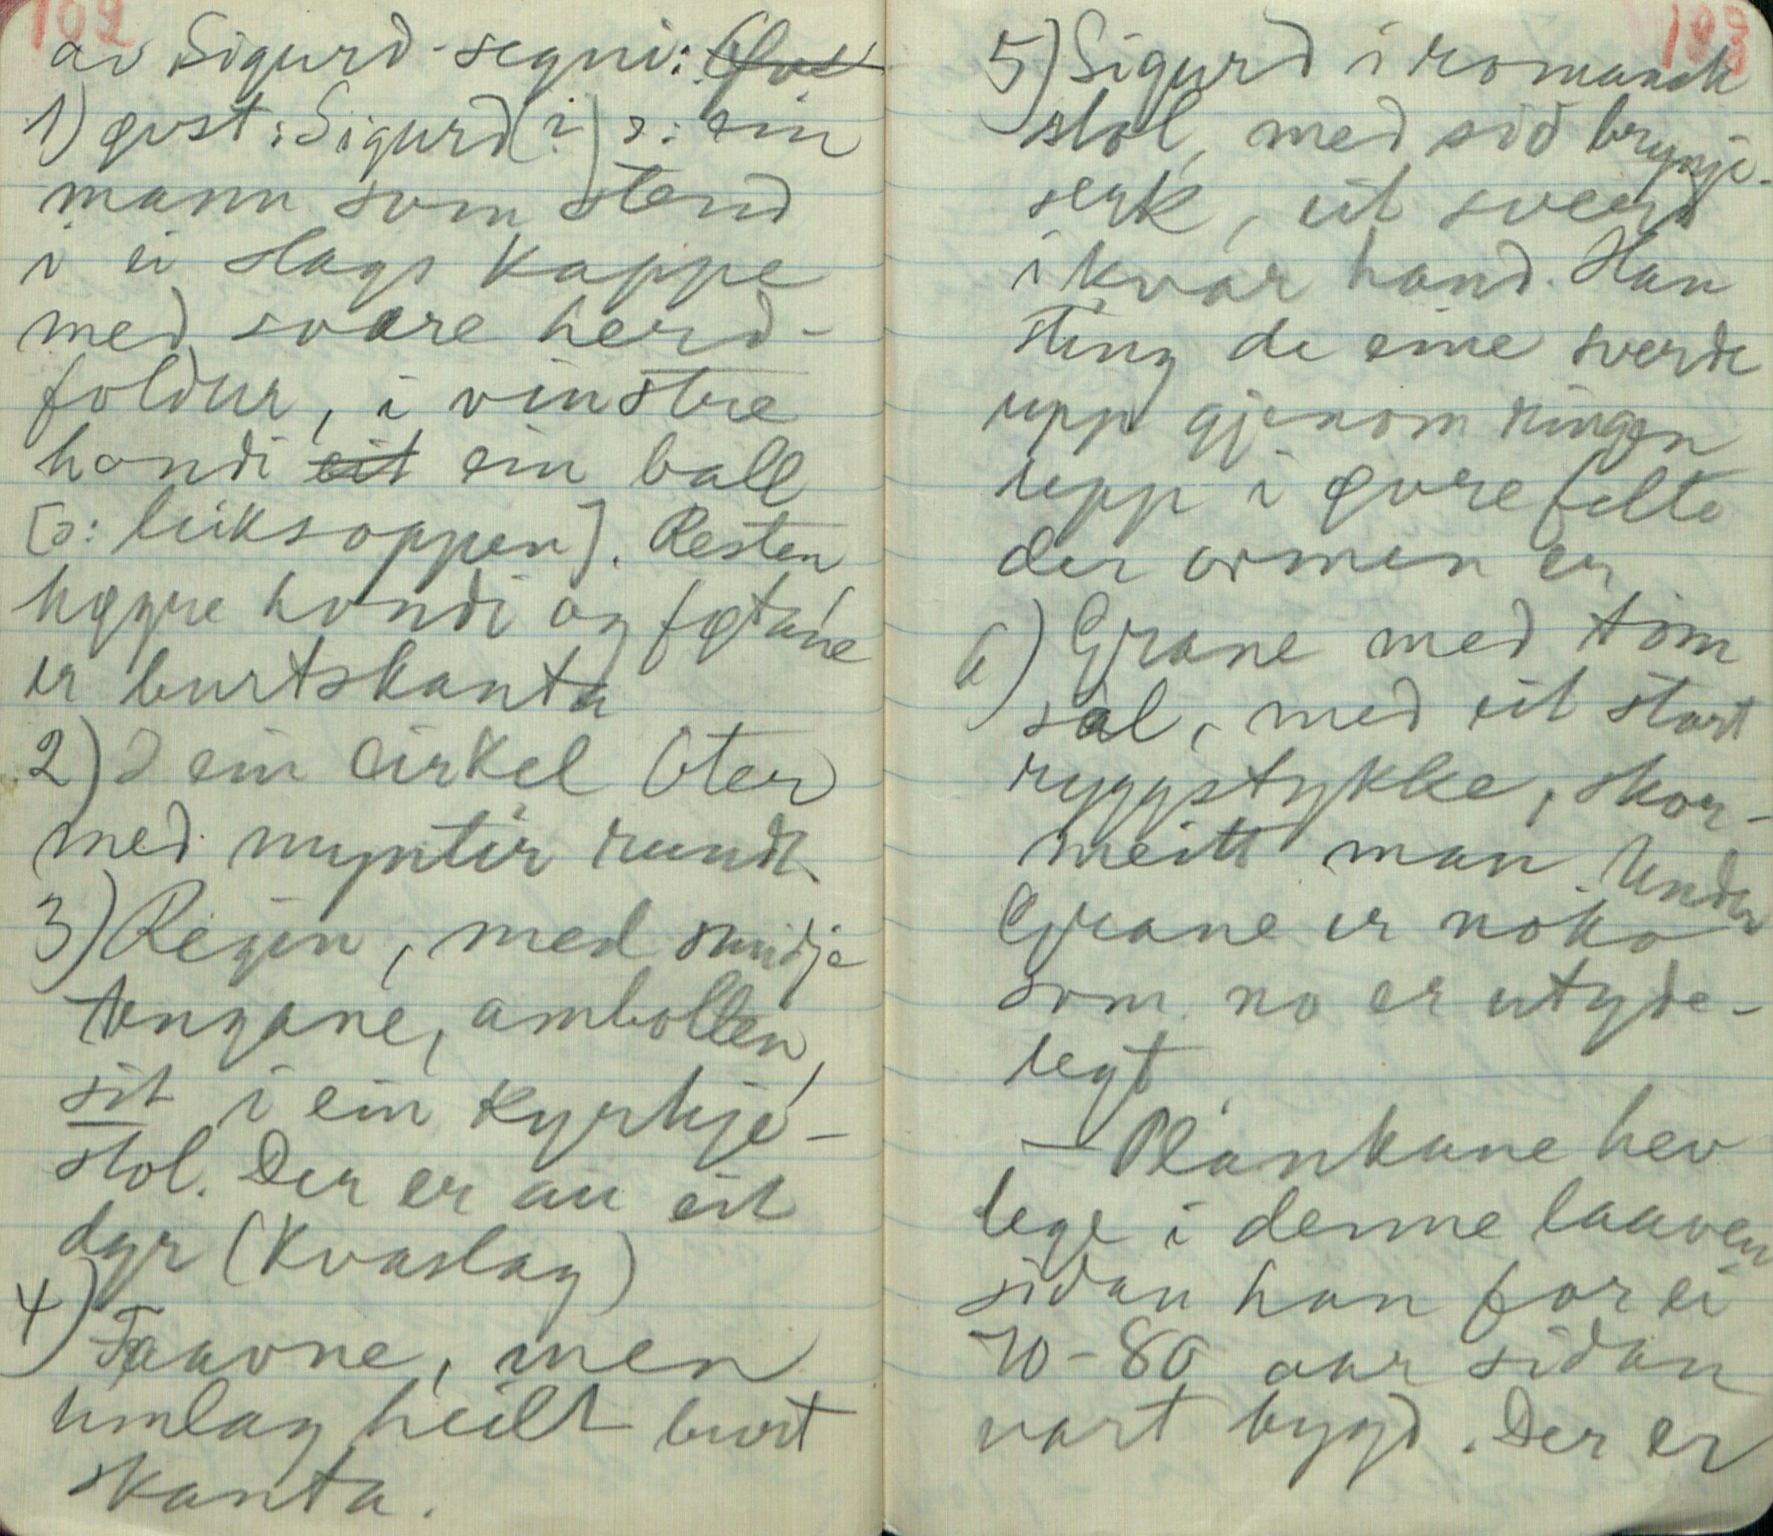 102
av Sigurd-segni: Øvst
1) øvst: Sigurd (?) ɔ: ein
mann som stend
i ei slags kappe
med svære herd-
foldur, i vinstre
hondi eit ein ball
[ɔ: leiksoppen]. Resten
høgre hondi og føtane
er burtskanta
2) I ein cirkel Oter
med myntir rundt.
3) Regin, med smidje
tengane, ambolten,
sit i ein kyrkje-
stol. Der er au eit
dyr (kvaslag)
4) Faavne, men
umlag heilt burt
skanta.
103
5) Sigurd i romansk
stol, med sid brynje-
serk, eit sverd
i kvar hand. Han
sting de eine sverde
upp gjenom ringen
upp i øvre felte
der ormen er
6) Grane med tom
sal, med eit stort
ryggstykke, skor-
meitt man. Under
Grane er noko
som no er utyde-
legt
— Plankane hev
lege i denne laaven
sidan han for ei
70-80 aar sidan
vart bygd. Der er